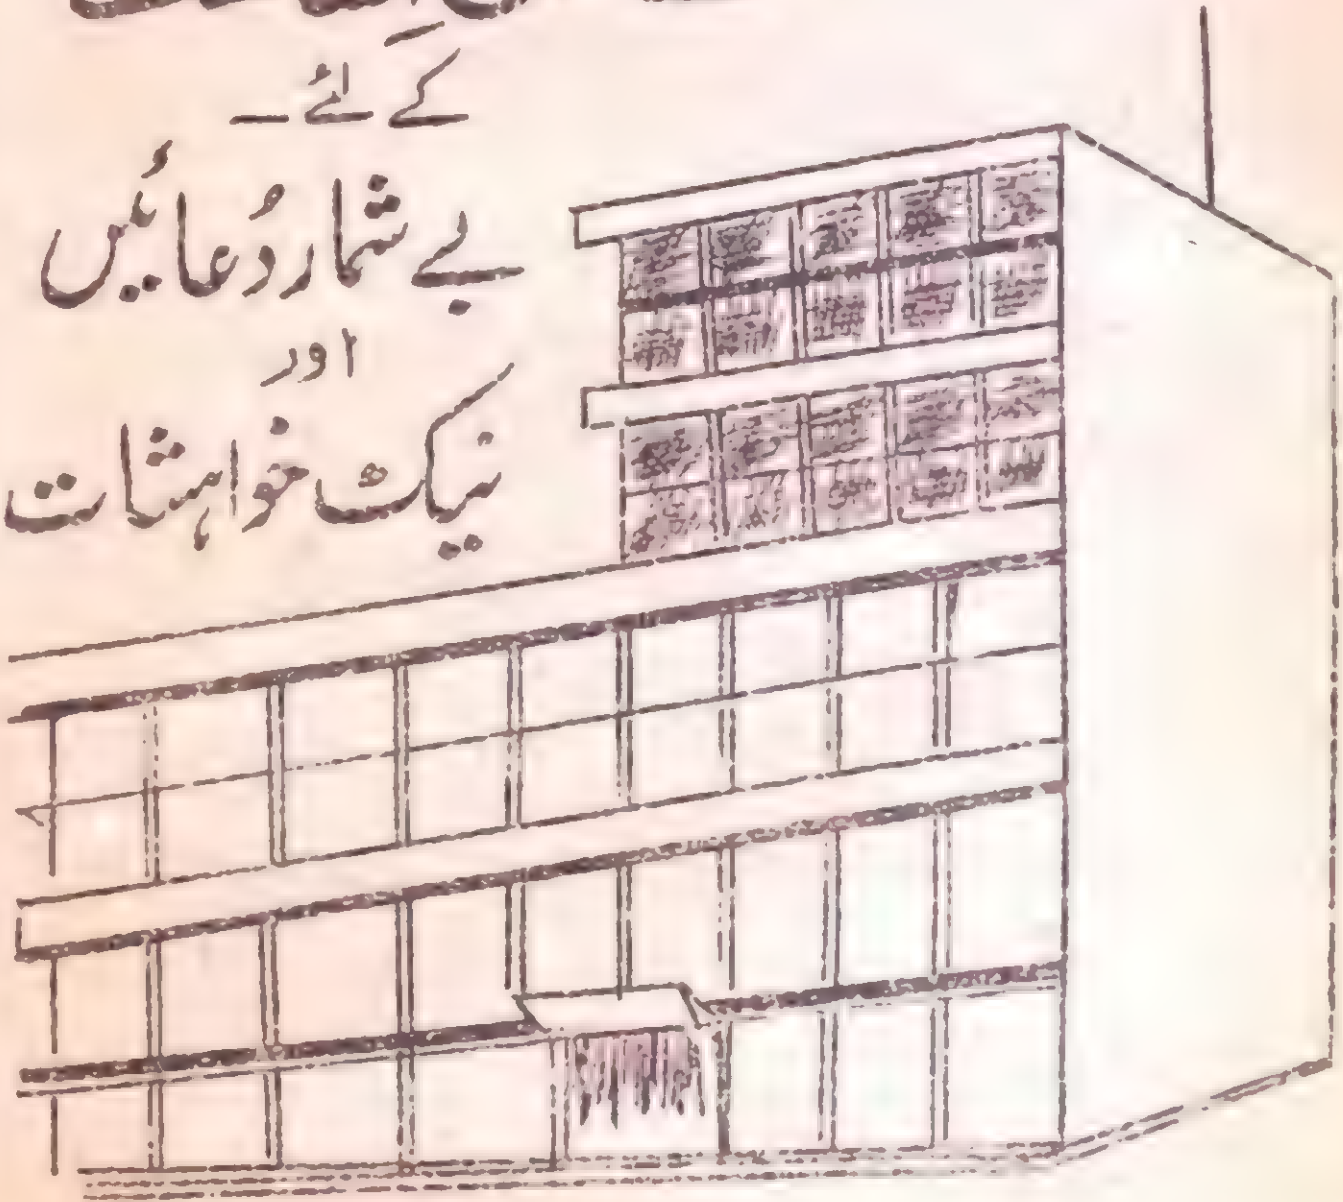 کے لئے
بے شمار دُعائیں
اور
نیک خواہشات